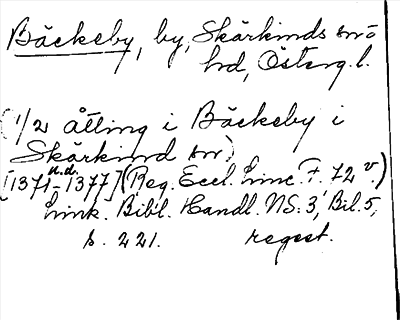 Bäckeby, by, Skärkinds sn o
hd, Österg. l.
(1/2 åtting i Bäckeby i
Skärkind sn)
u.d.
[1371-1377] (Reg. Eccl. Linc. F. 72 v.)
Link. Bibl. Handl. NS. 3, Bil. 5,
s. 221. regest.